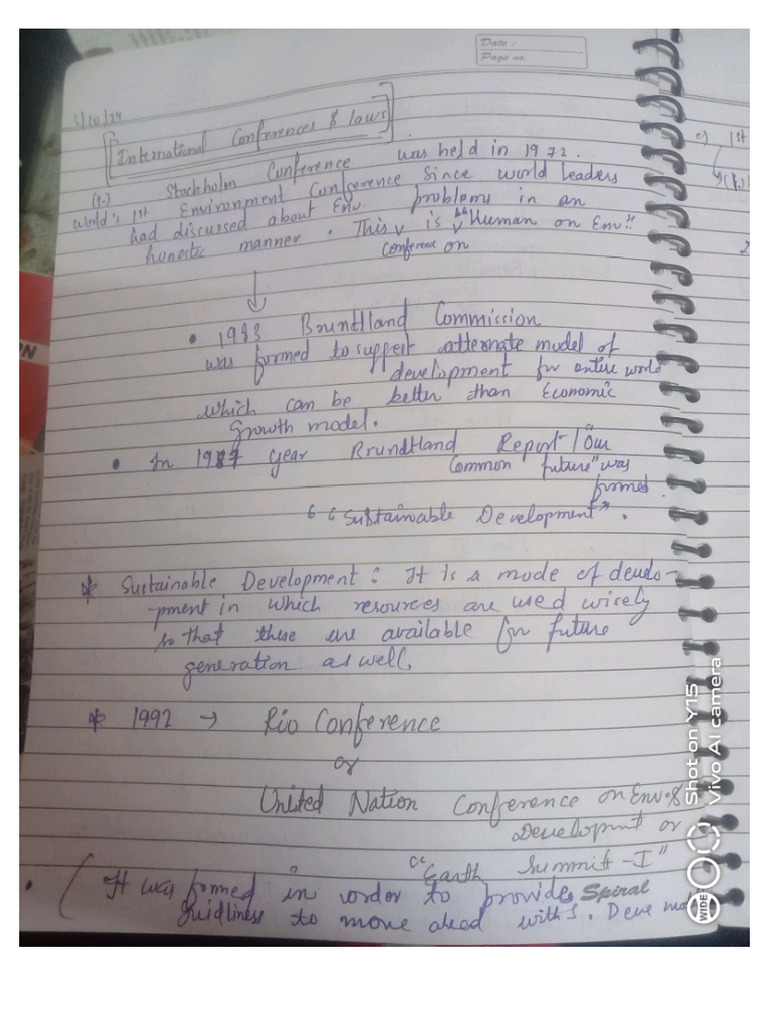 Date :
Page no.
1/10/24
International Conferences & laws
(1.) Stochholm Conference was held in 1972.
world's 1st Environment Conference Since world leaders
had discussed about Env. problems in an
hunostic manner. This is "Human on Env."
conference on
• 1983 Brundtland Commission
was formed to suppest alternate model of
development for entire world
which can be better than Economic
Growth model.
• In 1987 year Brundtland Report / "Our
Common future" was
formed
"Sustainable Development".
* Sustainable Development : It is a mode of develo-
pment in which resources are used wicely
so that these are available for future
generation as well.
* 1992 → Rio Conference
or
United Nation Conference on Env. &
Development or
"Earth Summit-I"
• (It was formed in order to provide
guidliness to move ahead with S. Deve
Spiral
c) 1st
Shot on Y15
Vivo AI camera
WIDE
ON